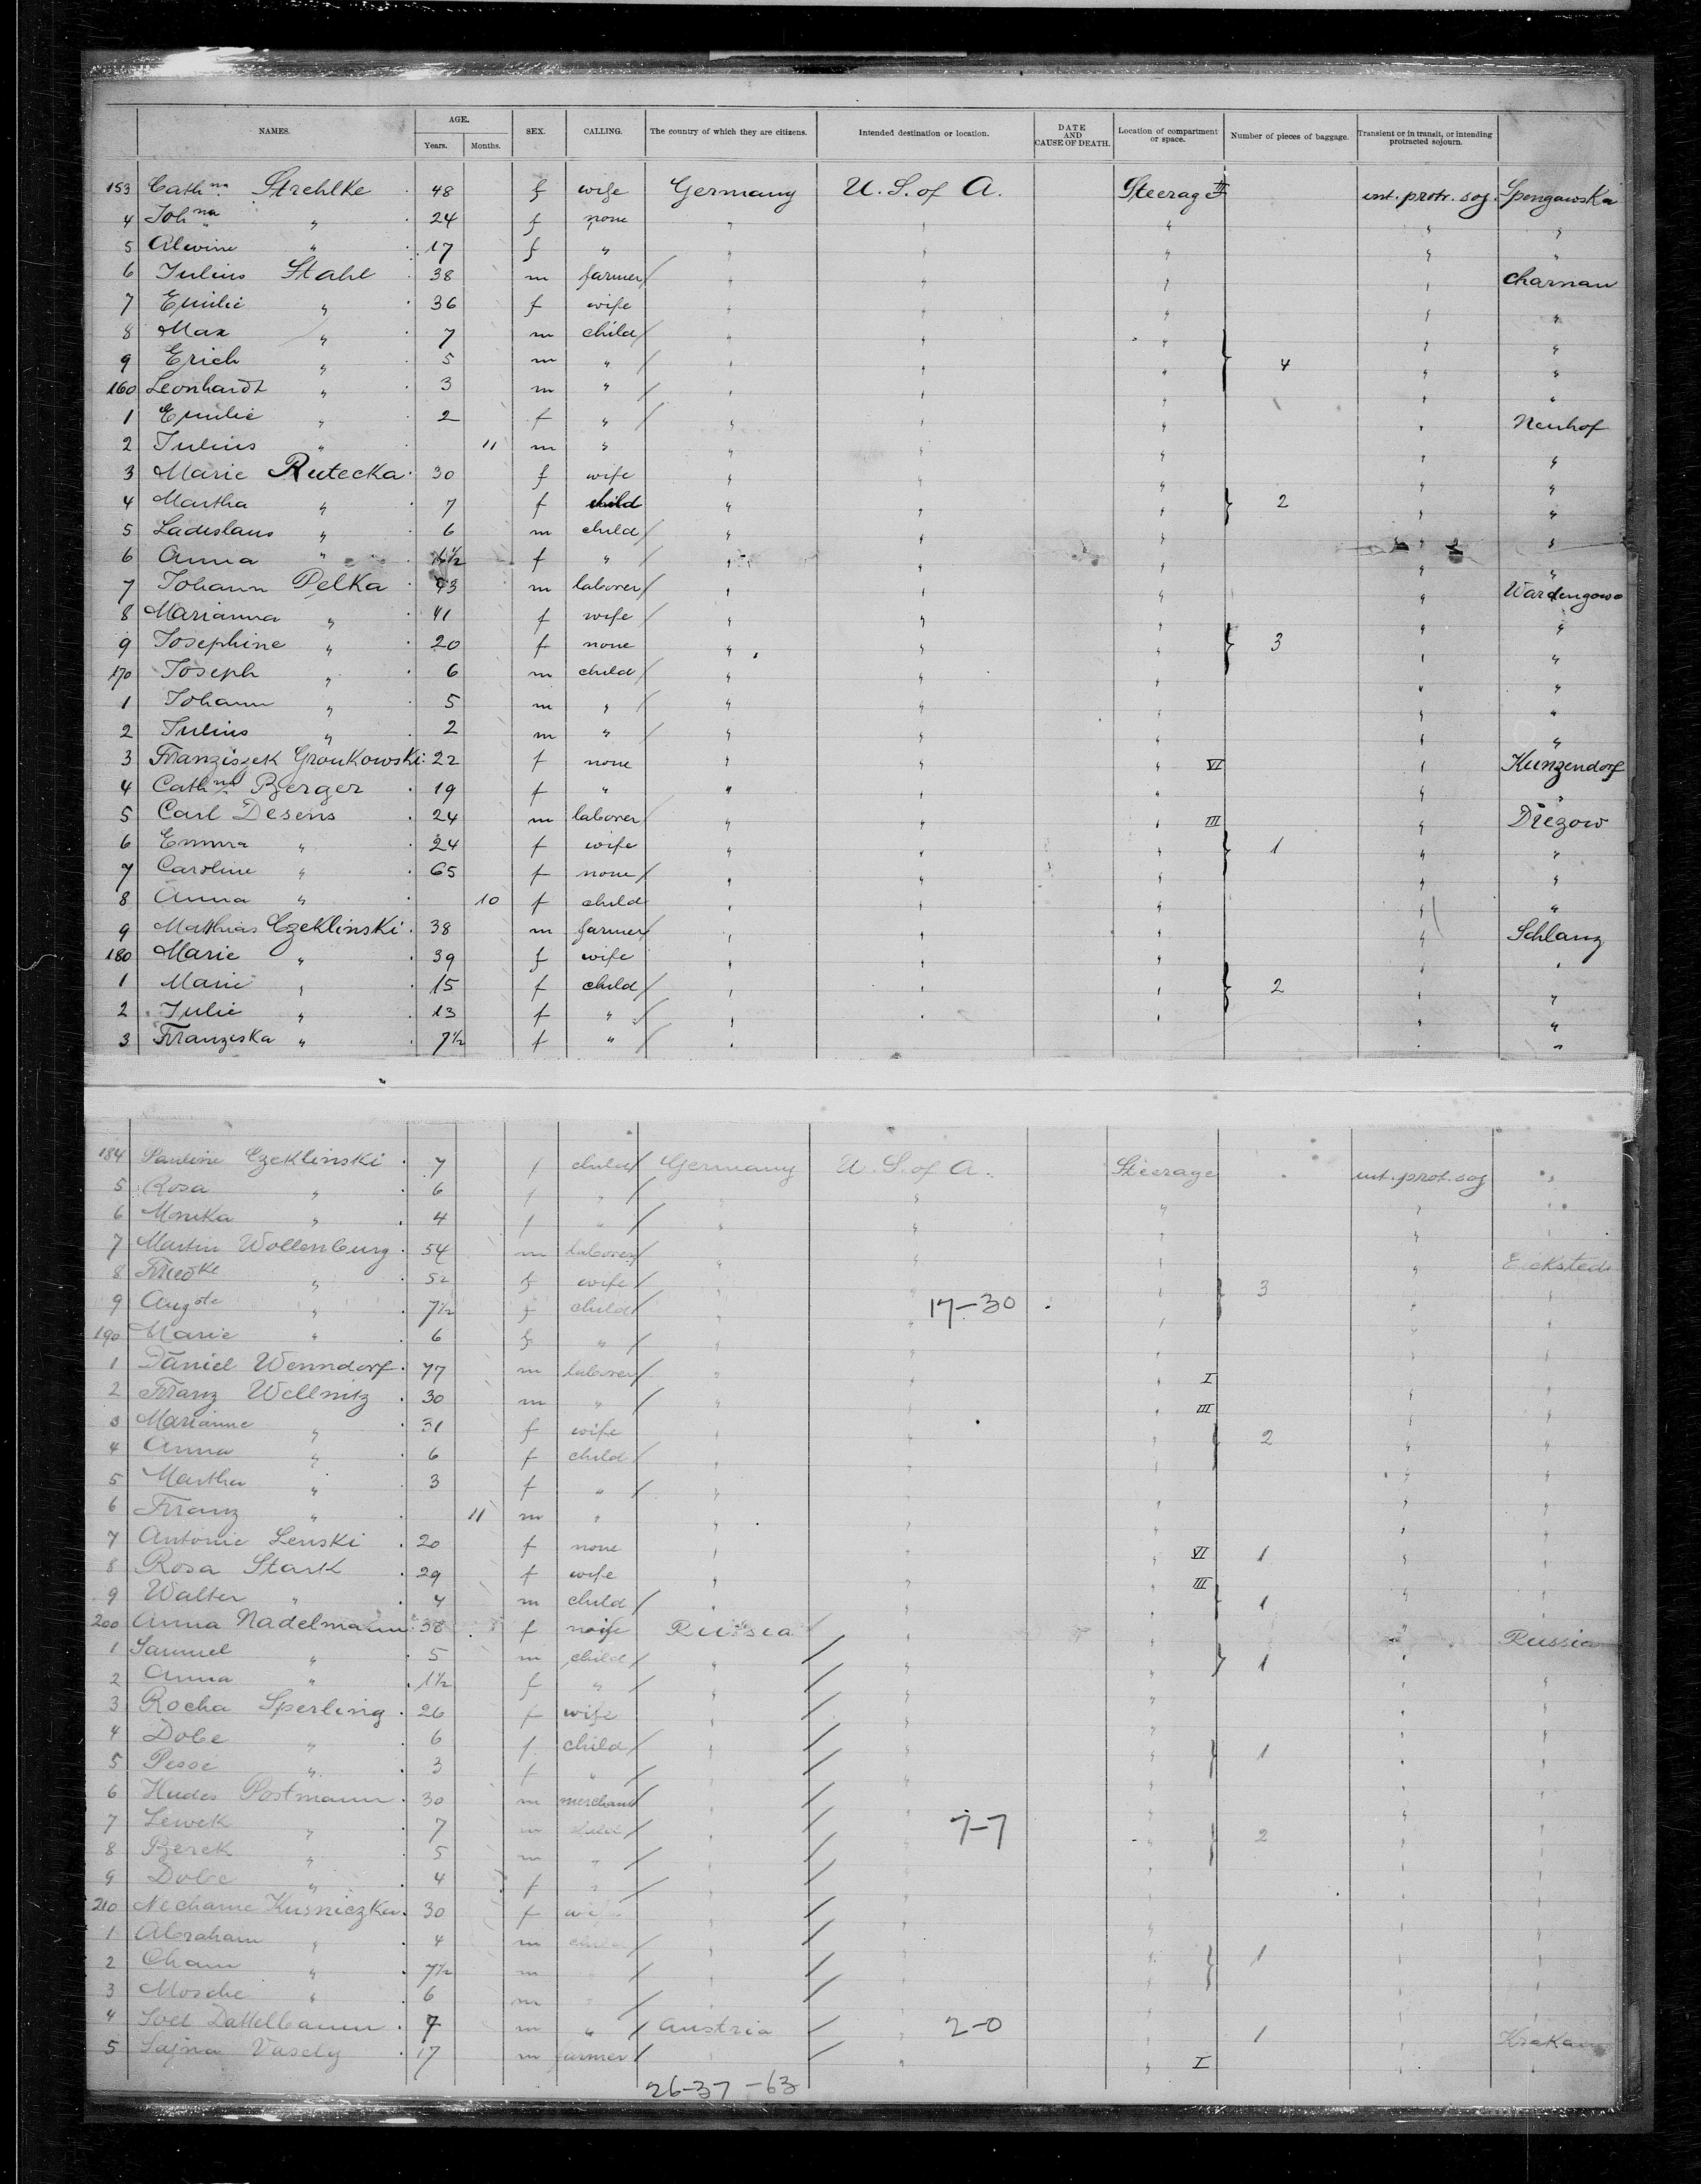 NAMES. AGE. Years. Months. SEX. CALLING. The country of which they are citizens. Intended destination or location. DATE AND CAUSE OF DEATH. Location of compartment or space. Number of pieces of baggage. Transient or in transit, or intending protracted sojourn.
153 Cath.na Strehlke 48 f wife Germany U. S. of A. Steerage III int. protr. soj. Spengawska
4 Joh.na " 24 f none " " " " "
5 Alwine " 17 f " " " " " "
6 Julius Stahl 38 m farmer " " " " Charnau
7 Emilie " 36 f wife " " " " "
8 Max " 7 m child " " " " "
9 Erich " 5 m " " " " 4 " "
160 Leonhardt " 3 m " " " " " "
1 Emilie " 2 f " " " " " Neuhof
2 Julius " 11 m " " " " " "
3 Marie Rutecka 30 f wife " " " " "
4 Martha " 7 f child " " " 2 " "
5 Ladislaus " 6 m child " " " " "
6 Anna " 1½ f " " " " " "
7 Johann Pelka 43 m laborer " " " " Wardengowo
8 Marianna " 41 f wife " " " " "
9 Josephine " 20 f none " " " 3 " "
170 Joseph " 6 m child " " " " "
1 Johann " 5 m " " " " " "
2 Julius " 2 m " " " " " "
3 Franziszek Gronkowski 22 f none " " " VI " Kunzendorf
4 Cath.na Berger 19 f " " " " " "
5 Carl Desens 24 m laborer " " " III " Diezow
6 Emma " 24 f wife " " " 1 " "
7 Caroline " 65 f none " " " " "
8 Anna " 10 f child " " " " "
9 Mathias Czeklinski 38 m farmer " " " " Schlanz
180 Marie " 39 f wife " " " " "
1 Marie " 15 f child " " " 2 " "
2 Julie " 13 f " " " " " "
3 Franziska " 7½ f " " " " "
184 Pauline Czeklinski 7 f child Germany U. S. of A. Steerage int. prot. soj "
5 Rosa " 6 f " " " " "
6 Monika " 4 f " " " " " "
7 Martin Wollenburg 54 m laborer " " " " Eickstedt
8 Friedke " 52 f wife " " " 3 " "
9 Augste " 7½ f child " " 17-30 " " "
190 Marie " 6 f " " " " " "
1 Daniel Wenndorf 77 m laborer " " " I " "
2 Franz Wellnitz 30 m " " " " III " "
3 Marianne " 31 f wife " " " 2 " "
4 Anna " 6 f child " " " " "
5 Martha " 3 f " " " " " "
6 Franz " 11 m " " " " " "
7 Antonie Lenski 20 f none " " " VI 1 " "
8 Rosa Stark 29 f wife " " " III " "
9 Walter " 4 m child " " " 1 " "
200 Anna Nadelmann 38 f wife Russia " " " Russia
1 Samuel " 5 m child " " " 1 " "
2 Anna " 1½ f " " " " " "
3 Rocha Sperling 26 f wife " " " " "
4 Dobe " 6 f child " " " 1 " "
5 Pesse " 3 f " " " " " "
6 Hudes Postmann 30 m merchant " " " " "
7 Lewek " 7 m child " " 7-7 " 2 " "
8 Berek " 5 m " " " " " "
9 Dobe " 4 f " " " " " "
210 Nechame Kusniczka 30 f wife " " " " "
1 Abraham " 4 m child " " " 1 " "
2 Cham " 7½ m " " " " " "
3 Mosche " 6 m " " " " " "
4 Joel Dattelbaum 7 m " Austria " 2-0 " 1 " Krakau
5 Sajna Vasely 17 m farmer " " " I " "
26-37-63